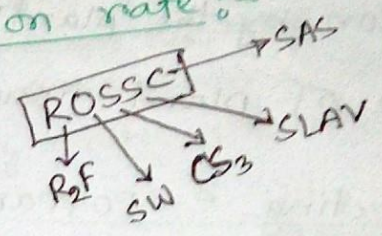 on rate.
ROSSC
SAS
SLAV
CS3
SW
R2F